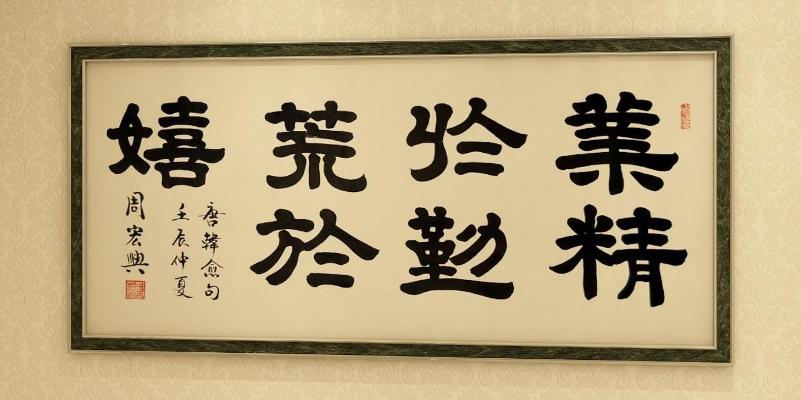 業精
扵勤
荒於
嬉
唐韓愈句
壬辰仲夏
周宏興